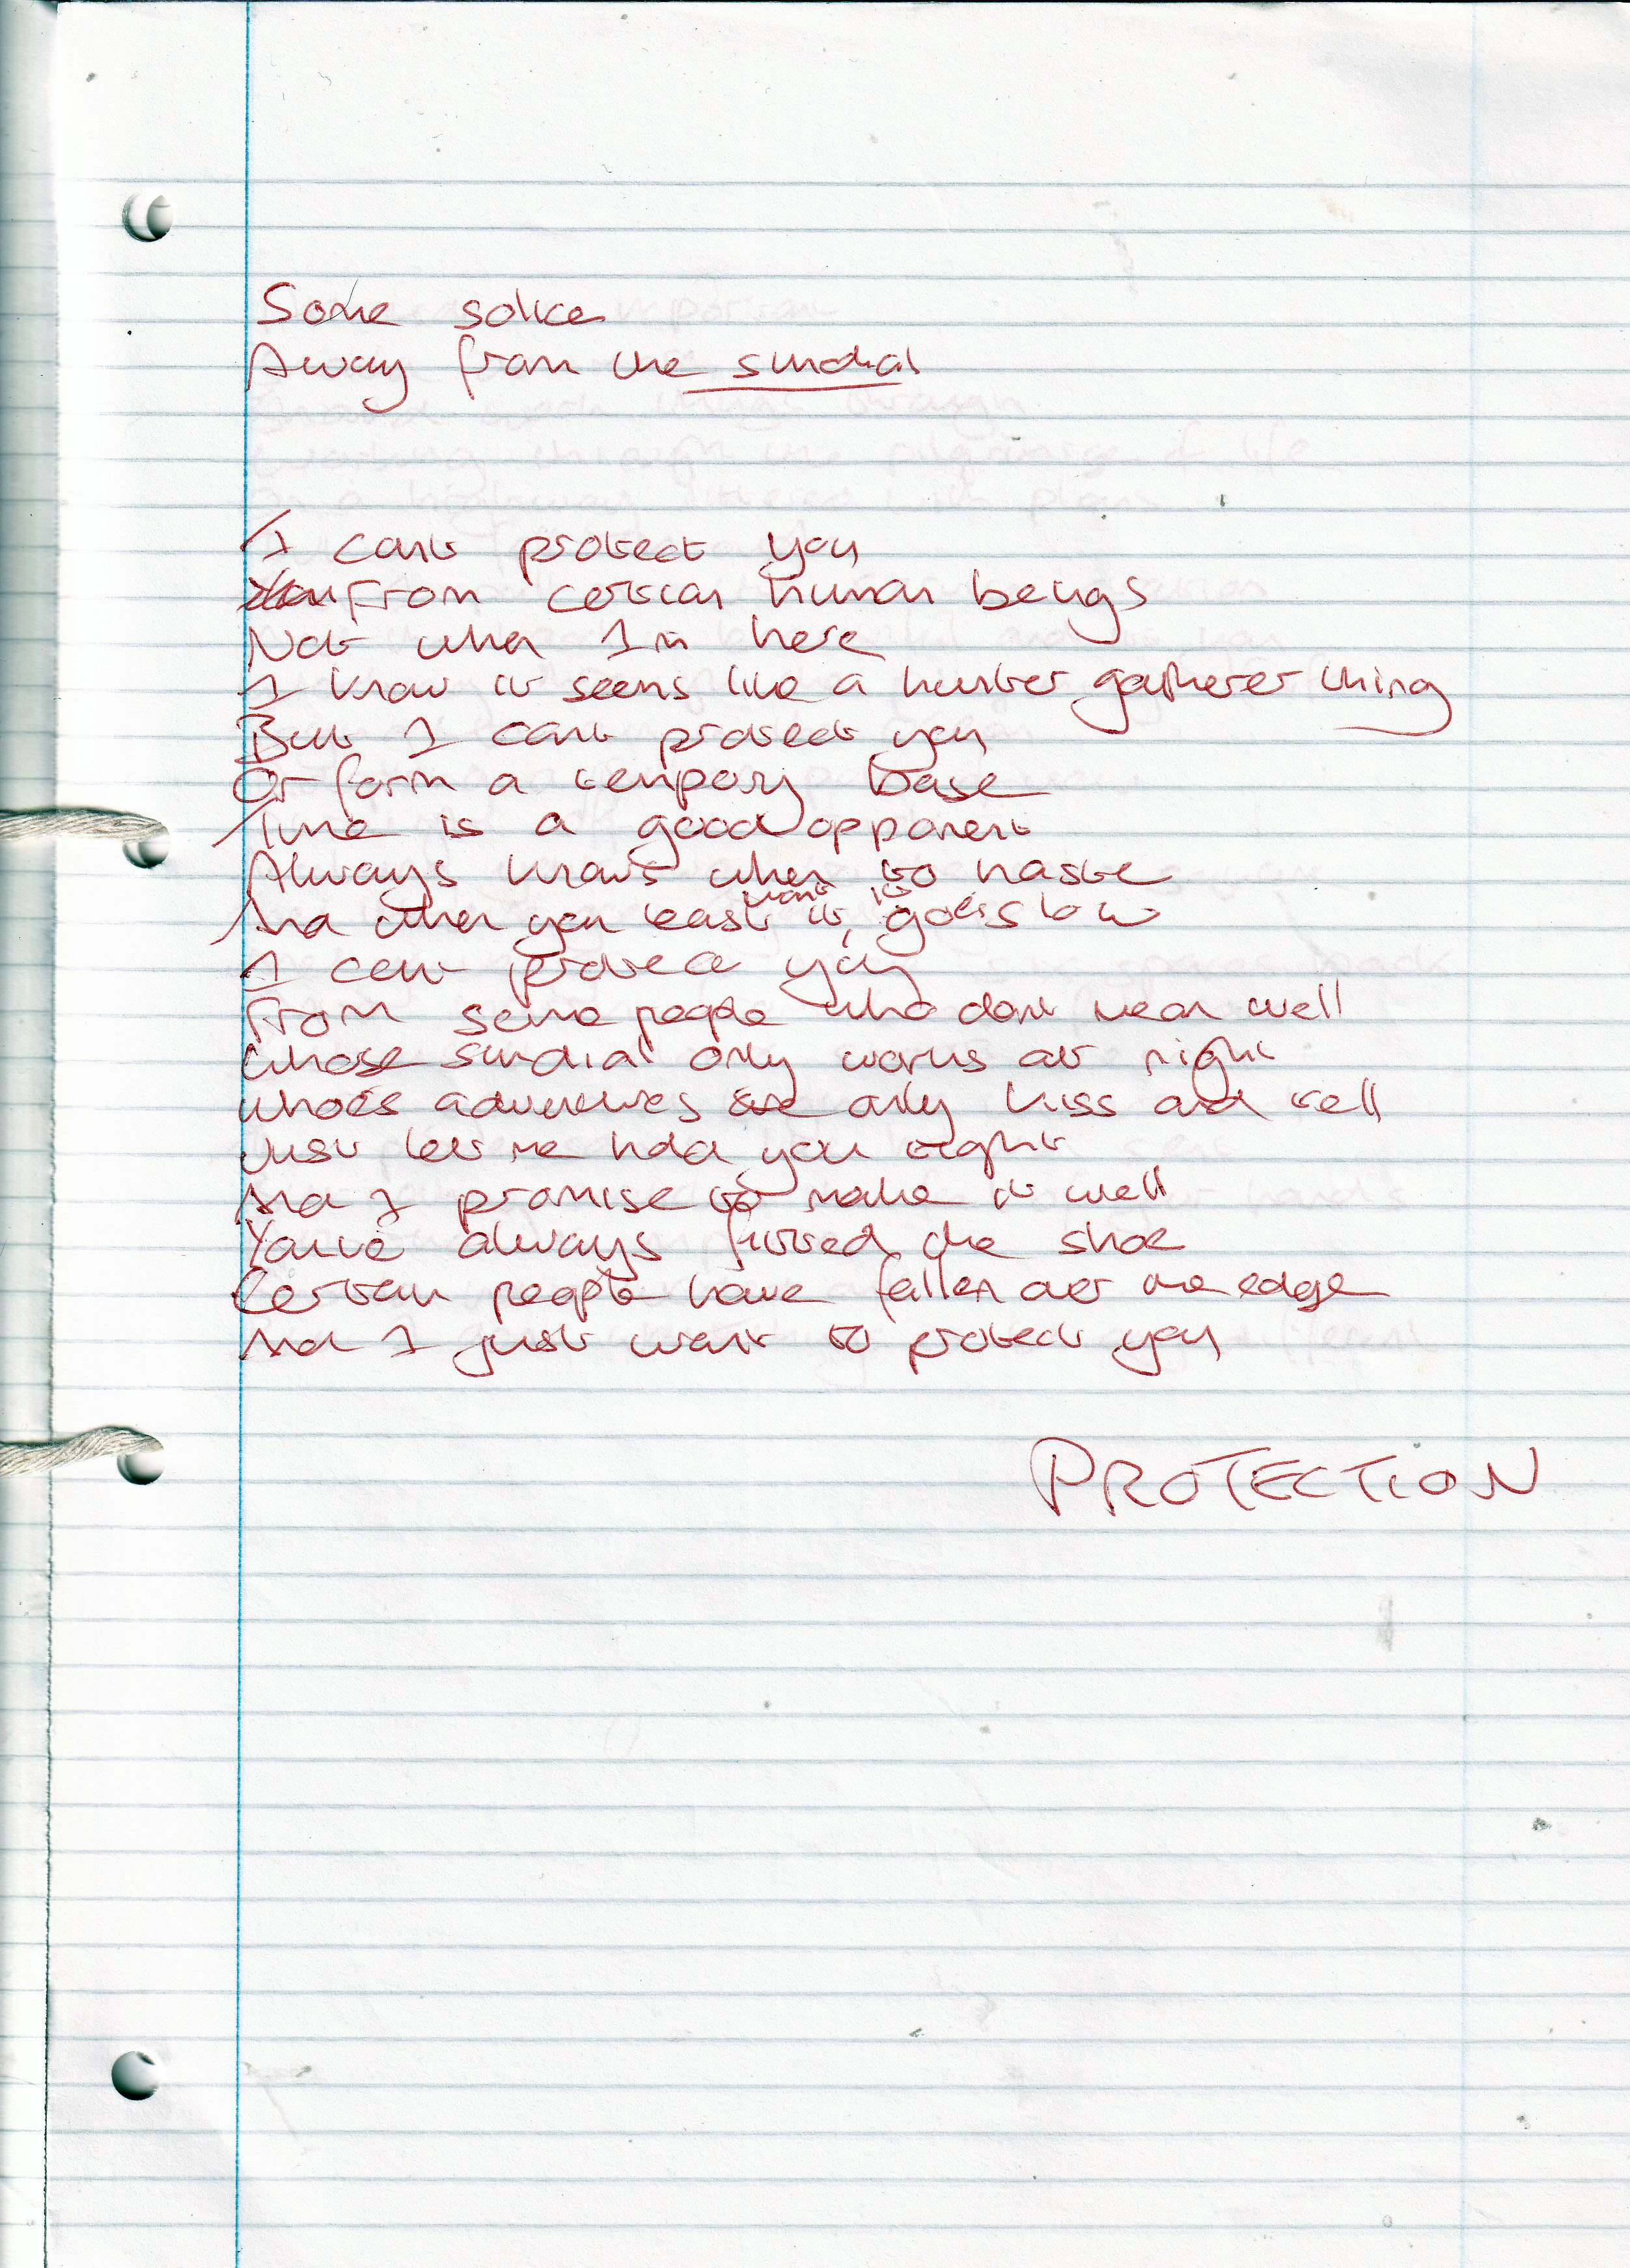 Some solice
Away from the sundial
I cant protect you
From certian human beings
Not when Im here
I know it seems like a hunter gatherer thing
But I cant protect you
Or form a tempory base
Time is a good opponent
Always knows when to haste
And when you least want it, it goes slow
I cant protect you
From some people who dont mean well
Whose sundial only works at night
Whoes adventures are only kiss and tell
Just let me hold you tight
And I promise to make it well
Youve always fitted the shoe
Certain people have fallen over the edge
And I just want to protect you
PROTECTION